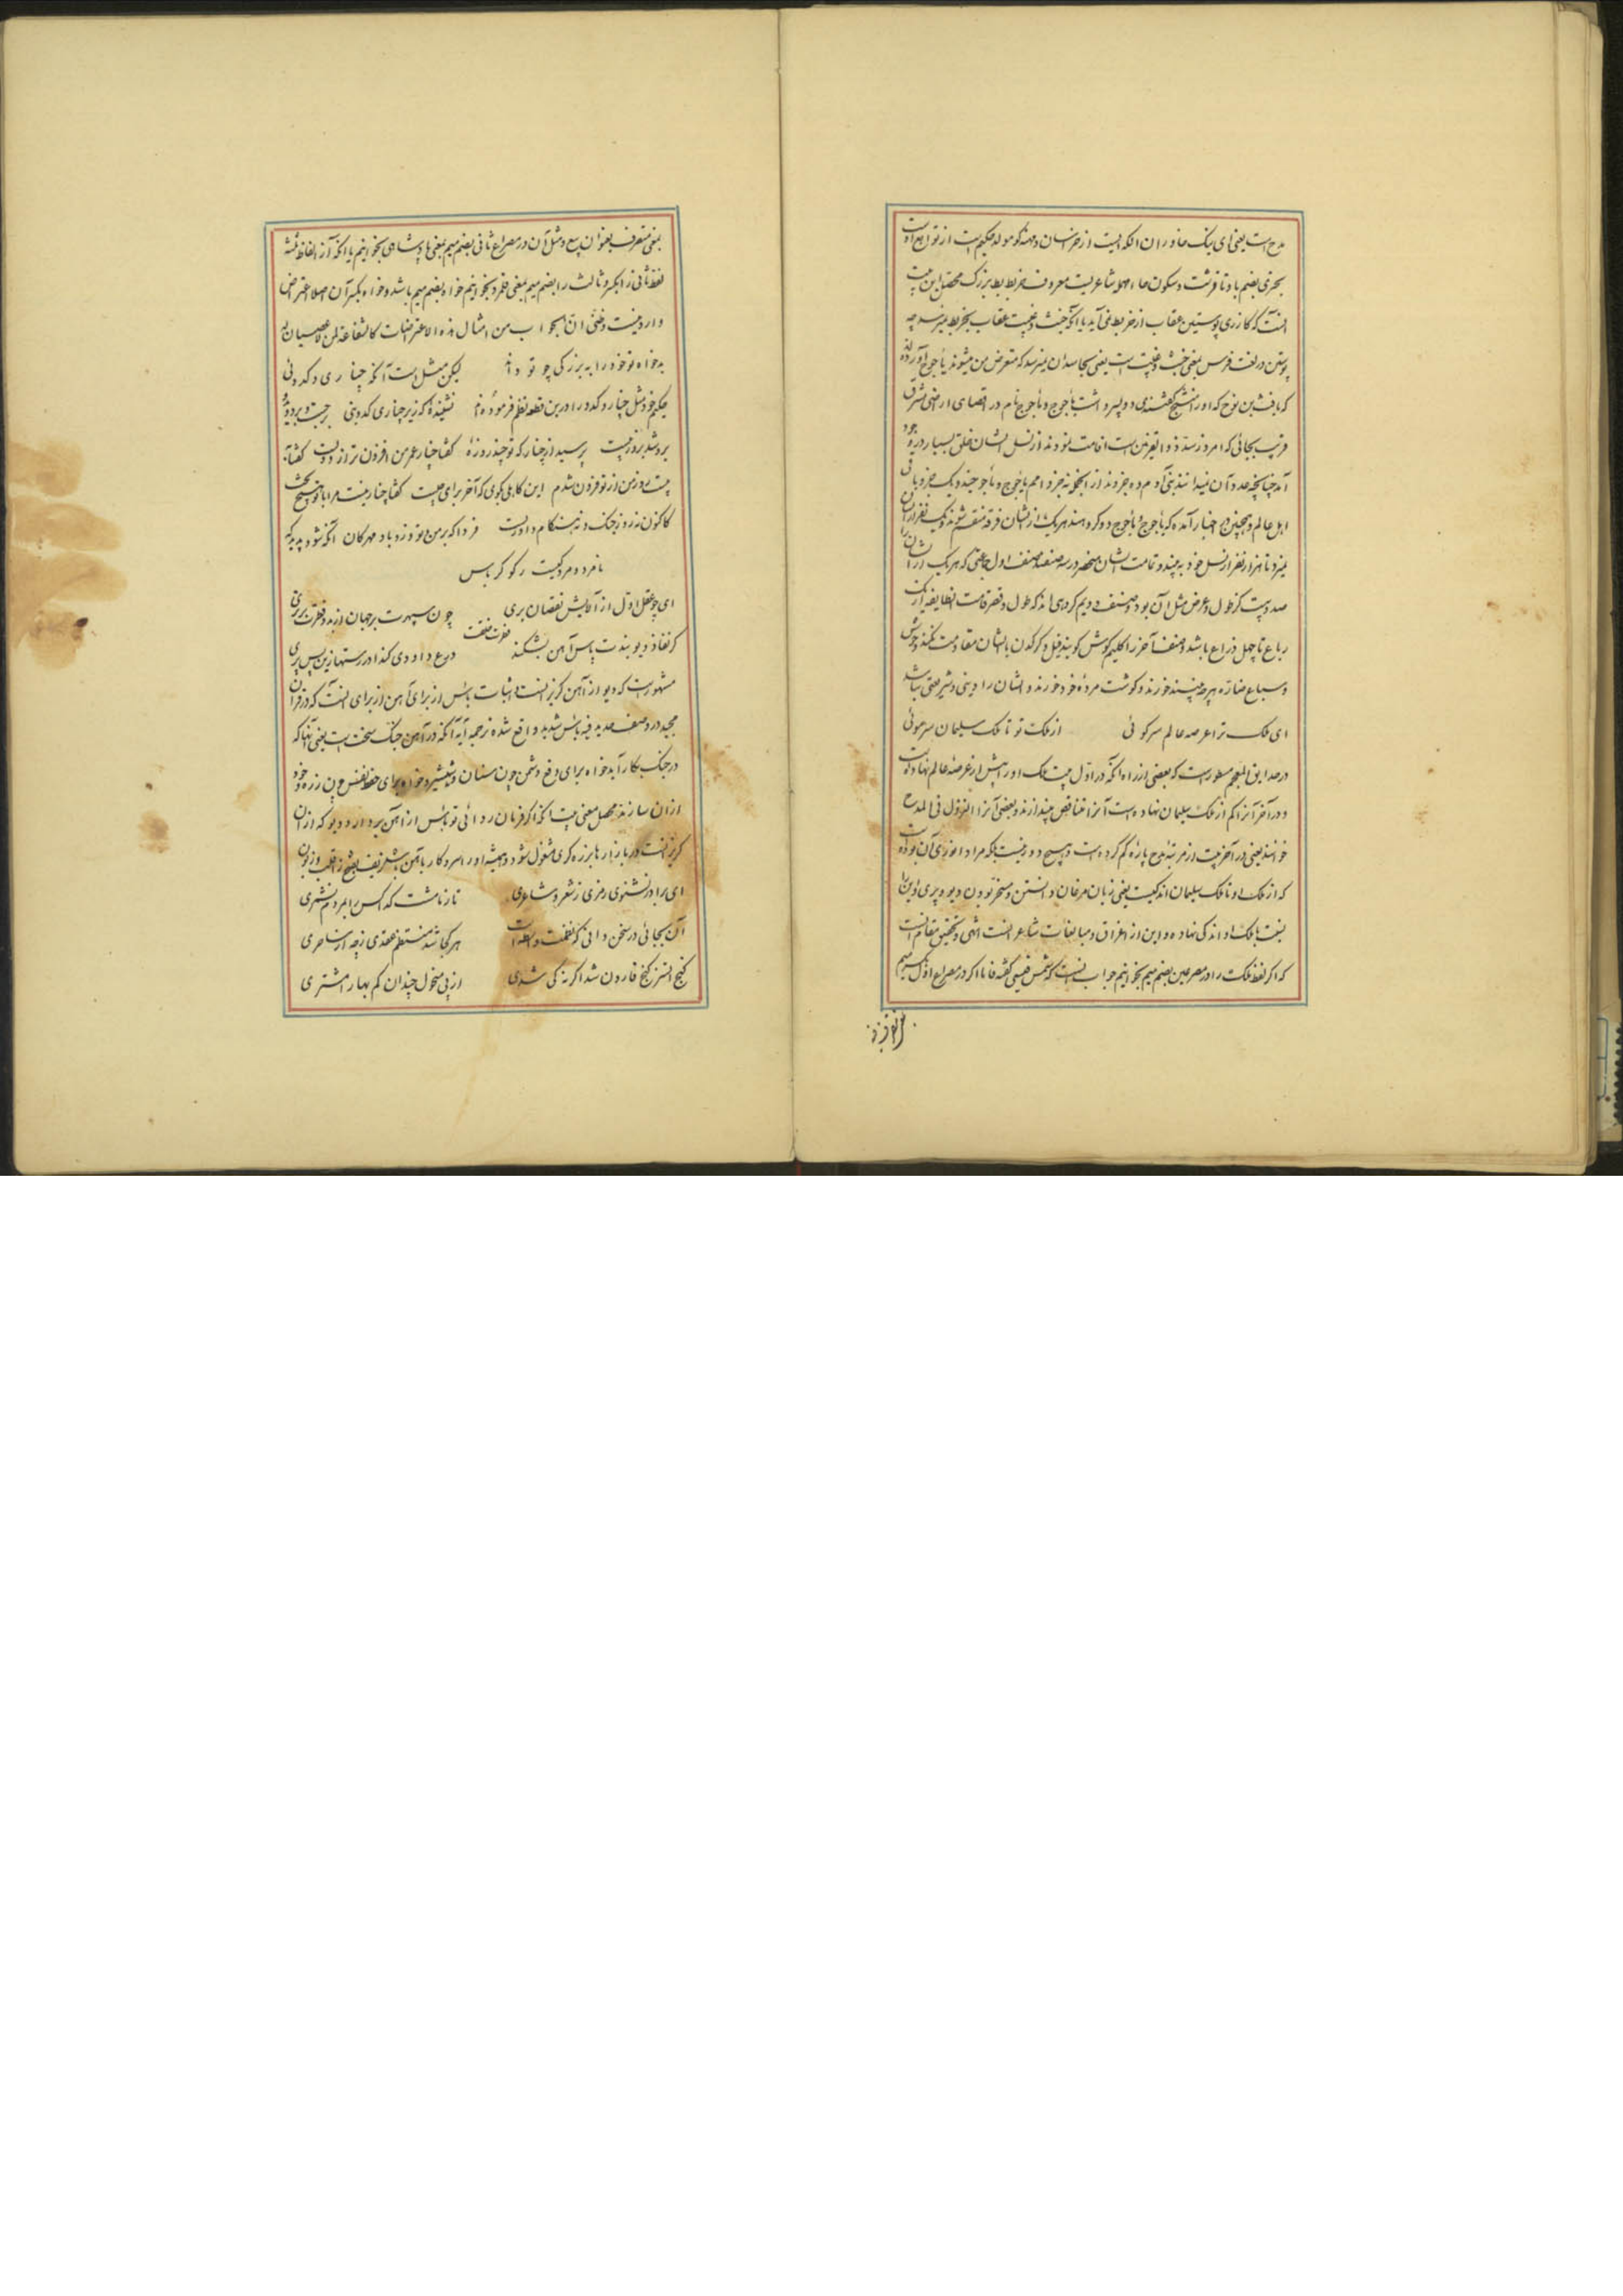 مدح است یعنی ای نیک خاوران آنکه است از خراسان و مهنه که مولد حکیم است از توابع اوست
بحتری بضم با و تا قرشت و سکون حاء مهمله شاعریست معروف خربط بط بزرگ محصل این بیت
آنست که گازری پوستین عقاب از خربط نمی آید یا آنکه خبث و غیبت عقاب بخربط میرسد چه
پوستین در لغت فرس بمعنی خبث و غیبت است یعنی بحاسدان میرسد که متعرض من میشوند یاجوج آورده‌اند
که یافث بن نوح که او را منشج گفتندی دو پسر داشت یاجوج و ماجوج نام در اقصای اراضی مشرق
قریب بجائی که امروز سد ذو القرنین است اقامت نمودند از نسل ایشان خلق بسیار در وجود
آمد چنانچه عدد آن نیست بنی آدم ده جزوند از آنجمله نه جزو امم یاجوج و ماجوجند و یک جزو باقی
اهل عالم و همچنین در اخبار آمده که یاجوج و ماجوج دو گروهند هر یک از ایشان فرقه منقسم شوند و یک نفر از ایشان
نمیرد تا هزار نفر از نسل خود به بیند و تمامت ایشان منحصر در سه صنفند صنف اول جماعتی که هر یک از ایشان را
صد و بیست گز طول و عرض مثل آن بود و صنف دویم گروهی اند که طول و قصر قامت انطایفه از یک
رباع تا چهل ذراع باشد و صنف آخر را گلیم گوش گویند فیل و کرگدن با ایشان مقاومت نکند و وحوش
و سباع ضاره هر چه بینند خورند و گوشت مرده خود خورند و ایشان را دینی و شریعتی نباشد
ای ملک ترا عرصه عالم سر کوئی از ملک تو تا ملک سلیمان سر موئی
در حدایق المعجم مسطور است که بعضی از راه آنکه در اول بیت ملک او را بیش از عرصه عالم نهاده است
و در آخر آنرا کم از ملک سلیمان نهاده است آنرا متناقض پندارند و بعضی آنرا النزول فی المدح
خوانند یعنی در آخر بیت از مرتبه مدح پاره کم کرده است و هیچ دور نیست بلکه مراد انوری آن بوده است
که از ملک او تا ملک سلیمان اندکیست یعنی زبان مرغان دانستن و مسخر بودن دیو و پری و این را
بنسبت با ملک او اندکی نهاده و این از اغراق و مبالغات شاعرانست انتهی و تحقیق مقام آنست
که اگر لفظ ملک را در مصرعین بضم میم بخوانیم جواب آنست که شمس قیس گفته فاما اگر در مصراع اول بکسر میم
بمعنی متصرف بعنوان بیع و مثل آن در مصراع ثانی بضم میم بمعنی پادشاهی بخوانیم یا آنکه از الفاظ ثلثه
لفظ ثانی را بکسر و ثالث را بضم میم بمعنی قلمرو بخوانیم خواه بضم میم باشد و خواه بکسر آن اصلا اعتراض
وارد نیست و ظنی ان الجواب من امثال هذه الاعتراضات کالشفاعة لمن لا عصیان له
بدخواه تو خود را ببزرگی چو تو داند لیکن مثل است آنکه چناری و کدوئی
حکیم خود مثل چنار و کدو را درین قطعه نظم فرموده نشنیده که زیر چناری کدوبنی برجست و بردوید
بروشد بروز بیست پرسید از چنار که تو چند روزه گفتا چنار عمر من افزون تر از دویست گفتا به
بیست روز من از تو فزون شدم این کاهلی بگوی که آخر برای چیست گفتا چنار نیست مرا با تو هیچ بحث
کاکنون نه روز جنگ و نه هنگام داوریست فردا که بر من و تو وزد باد مهرگان آنگه شود پدید که
نامرد و مرد کیست رکو کرباس
ای چو عقل اول از آلایش نقصان بری چون سپهرت بر جهان از بدو فطرت برتری
گر نفاذ دیو بندت پاس آهن بشکند درع داودی کند در رستها زین پس پری
مشهور است که دیو از آهن گریزانست و اثبات بأس از برای آهن از برای آنست که در قرآن
مجید در وصف حدید فیه بأس شدید واقع شده ترجمه آیه آنکه در آهن جنگ سخت است یعنی آنها که
در جنگ بکار آید خواه برای دفع دشمن چون سنان و شمشیر و خواه برای حفظ نفس چون زره و خود
از آن سازند محصل معنی بیت آنکه اگر فرمان روائی تو بأس از آهن بردارد دیو که از آن
گریزانست در بازارها بزره گری مشغول شود
ای برادر بشنوی رمزی ز شعر و شاعری تا ز ما مشت گدا کس را بمردم نشمری
آن بجائی در سخن دانی که نظمت واسطه است هر کجا شد منتظم عقدی ز چه از ساحری
گنج آتسز گنج قارون شد اگر نه کی شدی از پی مخول چندان کم بها را مشتری